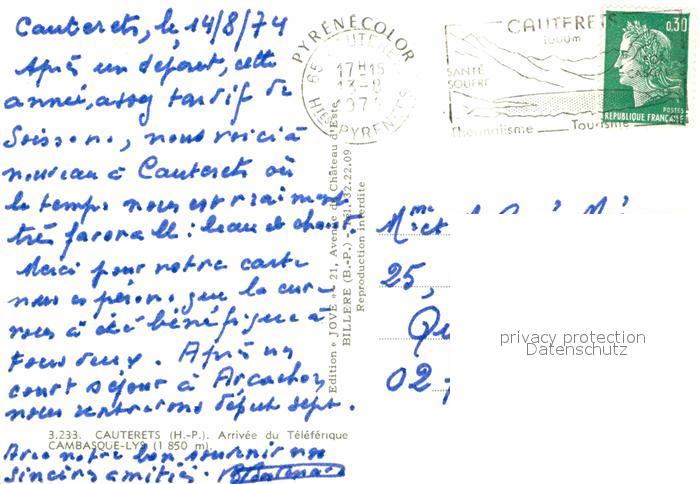 Cauterets, le 14/8/74
Après un départ, cette
année, assez tardif de
Soissons, nous voici à
nouveau à Cauterets où
le temps nous est vraiment
très favorable : beau et chaud.
Merci pour votre carte
nous espérons que la cure
vous a été bénéfique à
tous deux. Après un
court séjour à Arcachon
nous rentrerons début sept.
3.233. CAUTERETS (H.-P.). Arrivée du Téléférique
CAMBASQUE-LYS (1 850 m)
Avec notre bon souvenir nos
sincères amitiés.
PYRÉNÉCOLOR
65 CAUTERETS
17H15
13-8
1974
HTES PYRENEES
CAUTERETS
1000m
SANTÉ
SOUFRE
Thermalisme Tourisme
0,30
POSTES
REPUBLIQUE FRANÇAISE
Edition « JOVE » - 21, Avenue du Château d'Este
BILLERE (B.-P.) - 32.22.09
Reproduction interdite
Mme et M.
25,
Qu
02
privacy protection
Datenschutz